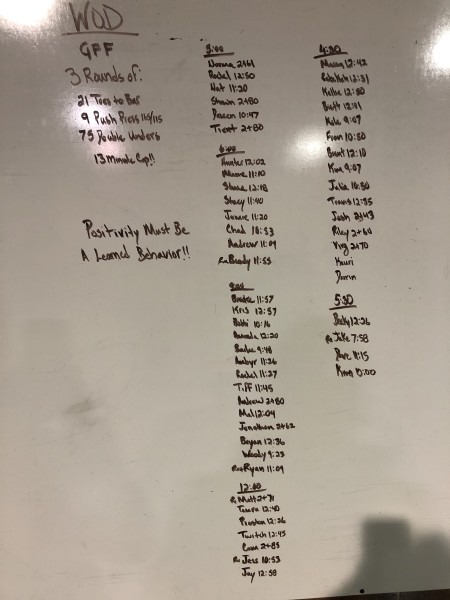 WOD
GFF
3 Rounds of:
21 Toes to Bar
9 Push Press 165/115
75 Double Unders
13 Minute Cap!!
Positivity Must Be
A Learned Behavior!!
5:00
Norma 2+61
Rachel 12:50
Nat 11:20
Shawn 2+80
Deacon 10:47
Trent 2+80
6:00
12:02
11:10
Shana 12:18
Stacy 11:40
11:20
Chad 10:53
Andrew 11:09
Rx Brady 11:55
11:57
Kris 12:57
10:16
12:20
9:48
11:26
Rachel 11:27
Tiff 11:45
Andrew 2+80
Mel 12:04
Jonathan 2+62
Bryan 12:36
Woody 9:23
Rx Ryan 11:09
12:00
Rx Matt 2+71
12:40
Preston 12:26
Twitch 12:45
2+85
Rx Jess 10:53
Jay 12:58
4:30
12:42
12:31
Kellie 12:30
Brett 12:41
Kyle 9:07
Fran 10:50
Brant 12:10
Kim 9:07
Julia 10:50
Travis 12:35
Josh 2+43
Riley 2+60
2+70
Kauri
Darin
5:30
Becky 12:26
Rx Jake 7:58
Dave 11:15